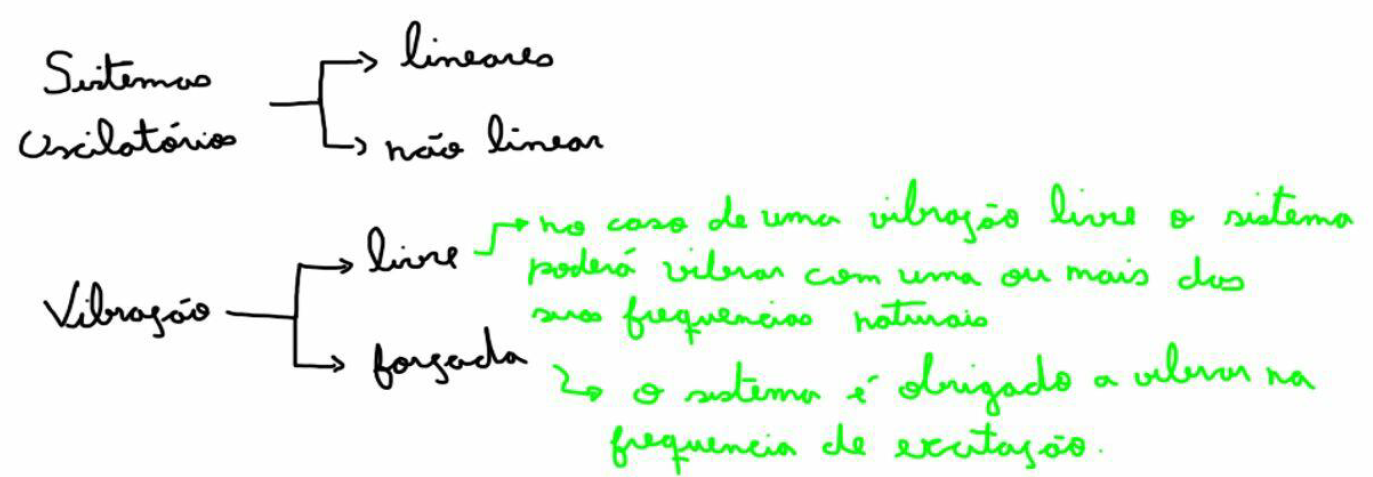 Sistemas
Oscilatórios
lineares
não linear
Vibração
livre
no caso de uma vibração livre o sistema
poderá vibrar com uma ou mais das
suas frequencias naturais
forçada
o sistema é obrigado a vibrar na
frequencia de excitação.